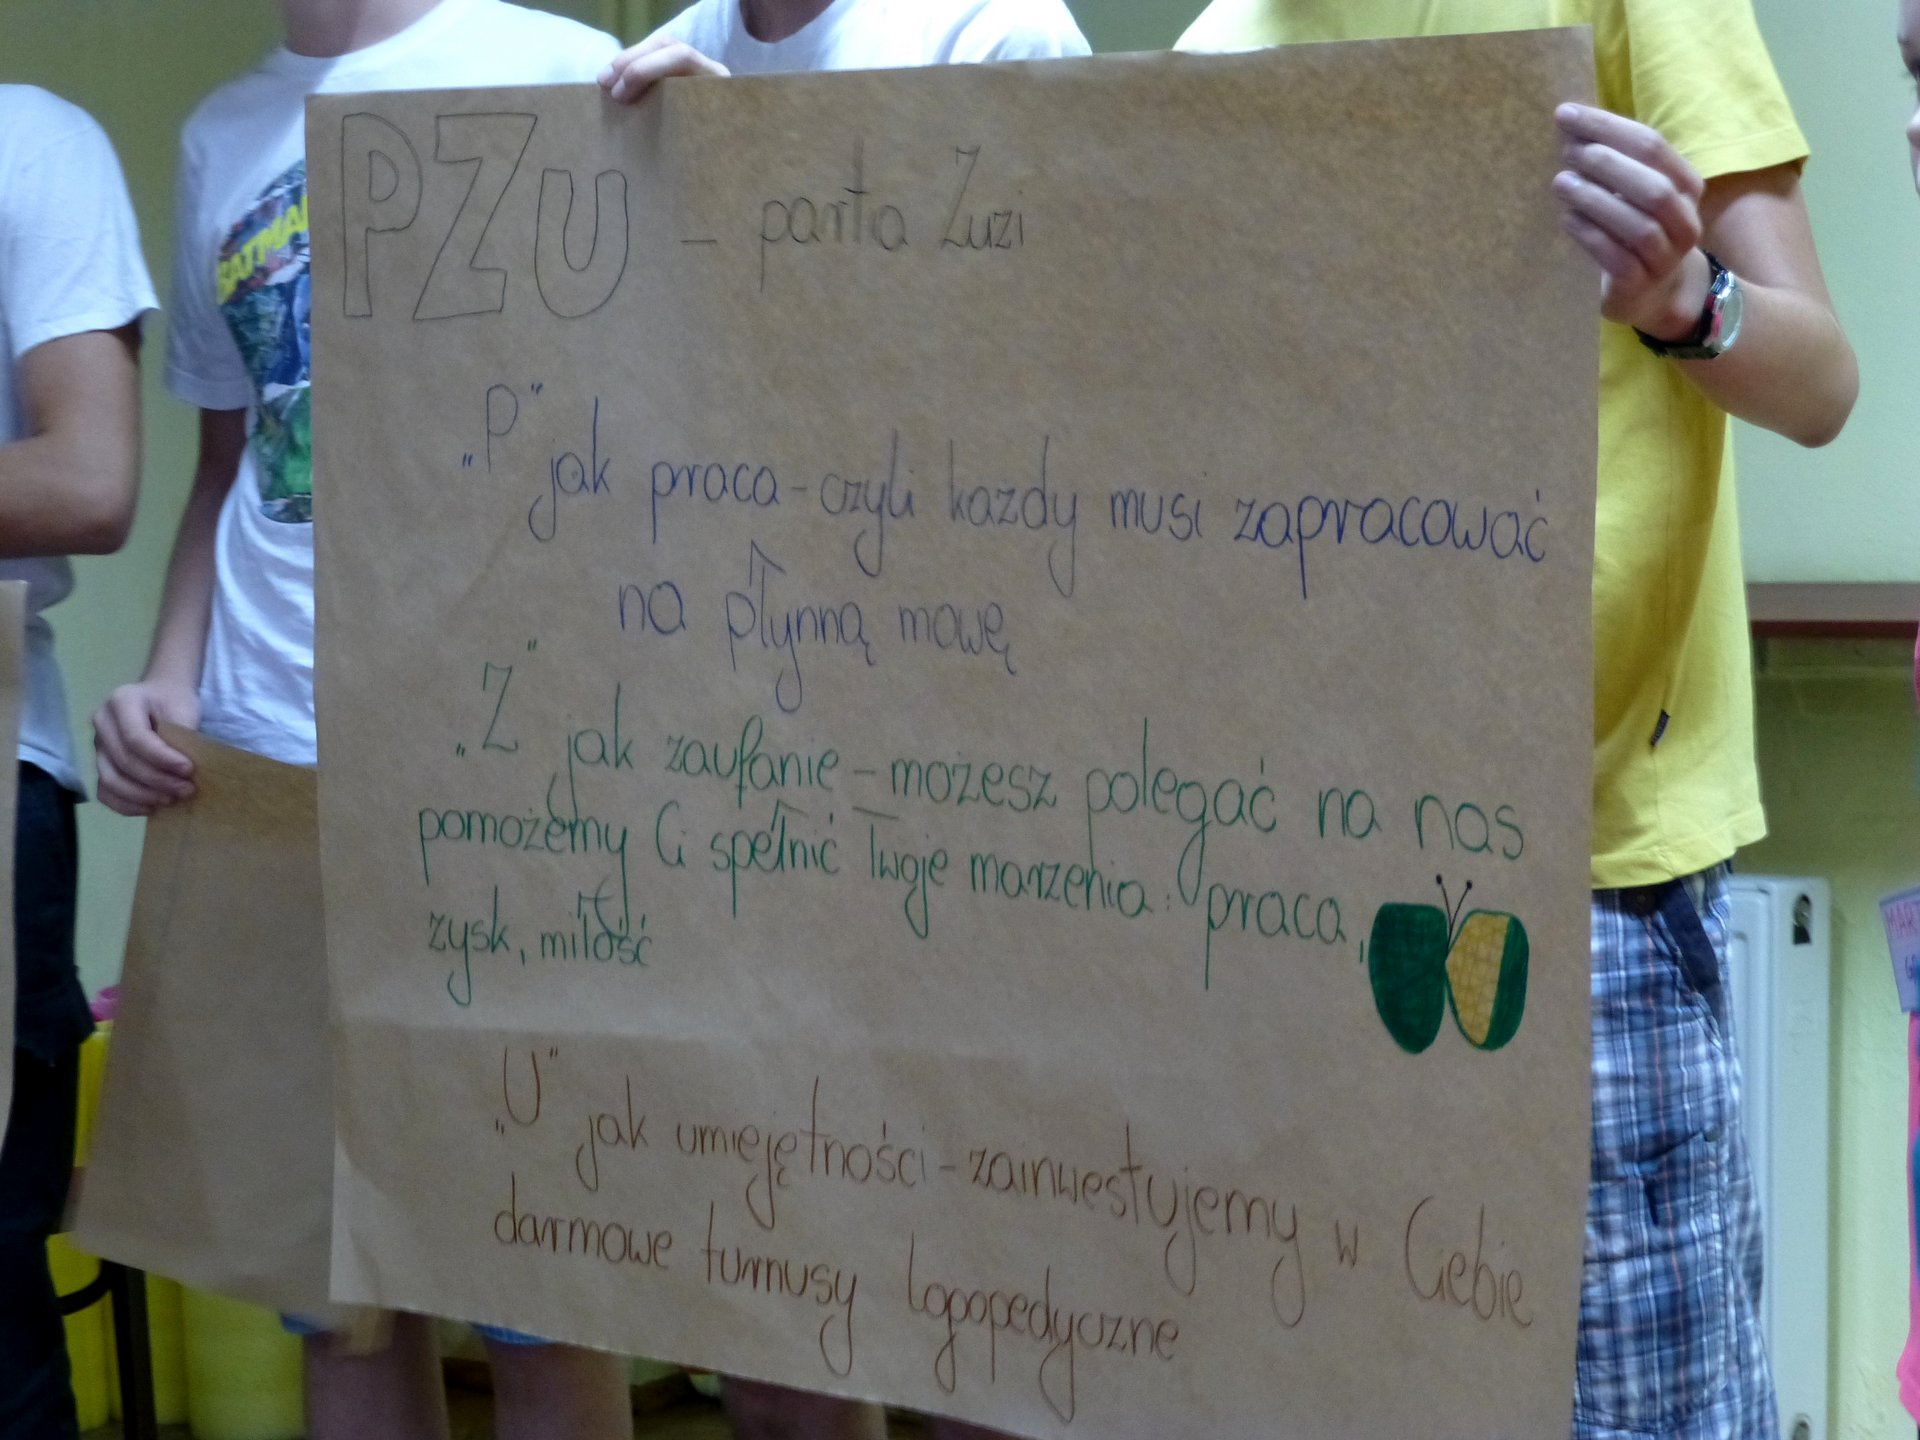 PZU – partia Zuzi
„P" jak praca – czyli każdy musi zapracować
na płynną mowę
„Z" jak zaufanie – możesz polegać na nas
pomożemy Ci spełnić Twoje marzenia: praca,
zysk, miłość
„U" jak umiejętności – zainwestujemy w Ciebie
darmowe turnusy logopedyczne
BATMAN